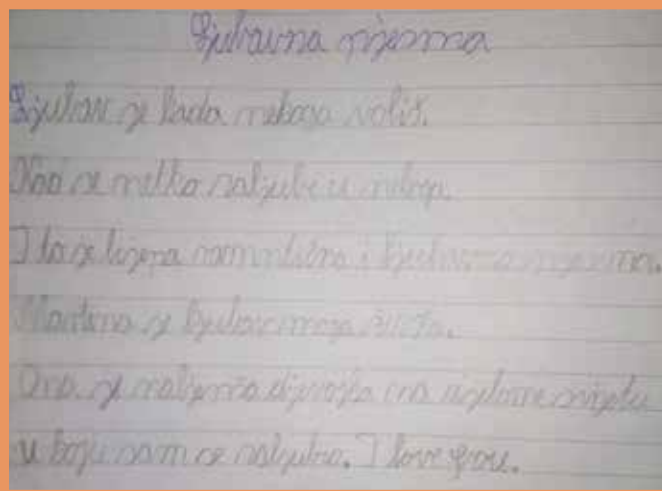 Ljubavna pjesma
Ljubav je kada nekoga voliš.
Kao se netko zaljubi u nekoga.
I to je lijepa romantična i ljubavna pjesma.
Martina je ljubav moga života.
Ona je najljepša djevojka na cijelome svijetu
u koju sam se zaljubio. I love you.